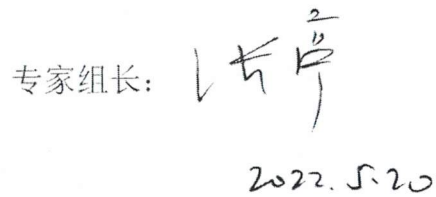 专家组长：
2022.5.20